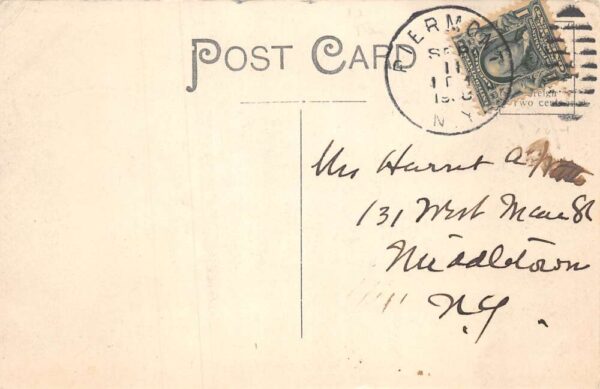 POST CARD
PIERMONT
SEP
11
N.Y.
1
Two cents
Mrs Harriet A
131 West Main St
Middletown
N.Y.